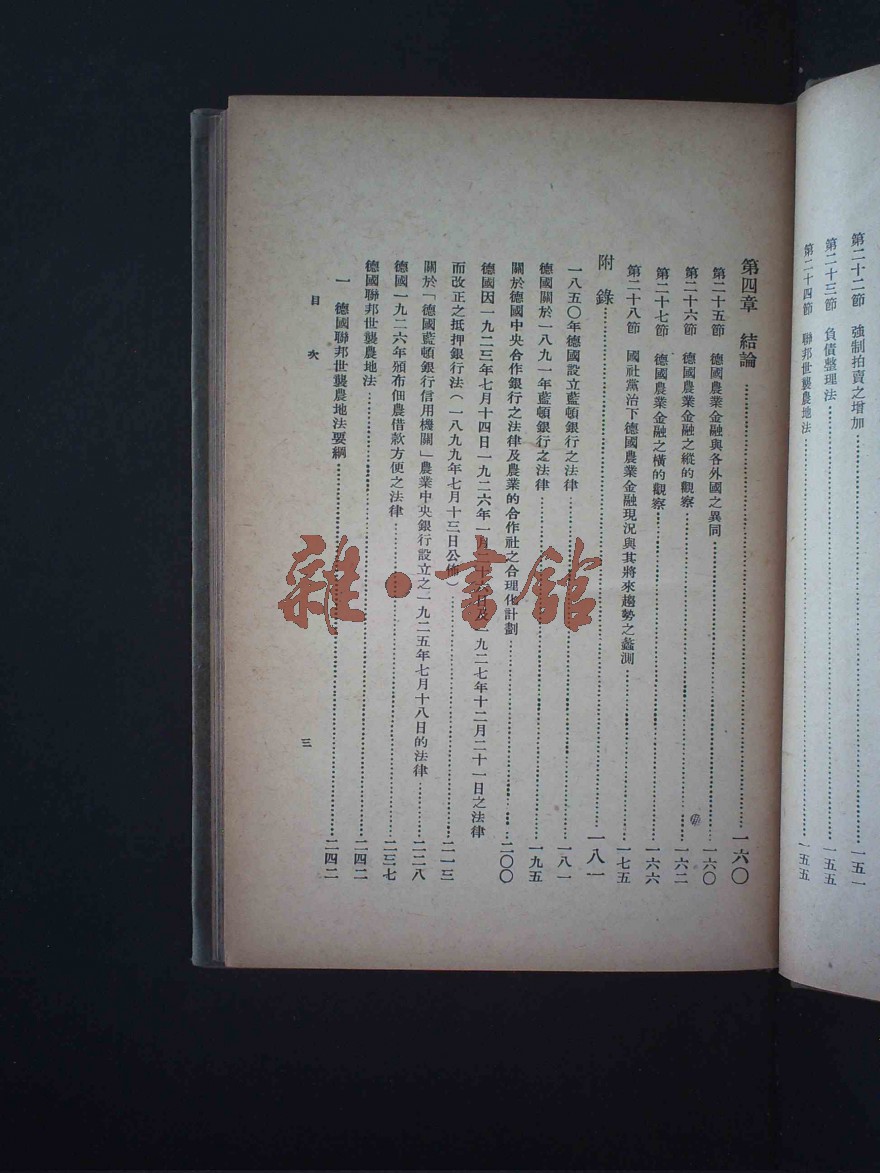 第二十二節　強制拍賣之增加……一五一
第二十三節　負債整理法……一五五
第二十四節　聯邦世襲農地法……一五五
第四章　結論……一六〇
第二十五節　德國農業金融與各外國之異同……一六〇
第二十六節　德國農業金融之縱的觀察……一六二
第二十七節　德國農業金融之橫的觀察……一六六
第二十八節　國社黨治下德國農業金融現況與其將來趨勢之蠡測……一七五
附　錄……一八一
一八五〇年德國設立藍頓銀行之法律……一八一
德國關於一八九一年藍頓銀行之法律……一九五
關於德國中央合作銀行之法律及農業的合作社之合理化計劃……二〇〇
德國因一九二三年七月十四日一九二六年一月二十六日及一九二七年十二月二十一日之法律
而改正之抵押銀行法（一八九九年七月十三日公佈）……二一三
關於「德國藍頓銀行信用機關」農業中央銀行設立之一九二五年七月十八日的法律……二二八
德國一九二六年頒布佃農借款方便之法律……二三七
德國聯邦世襲農地法……二四二
一　德國聯邦世襲農地法要綱……二四二
目　次
三
雜·書館